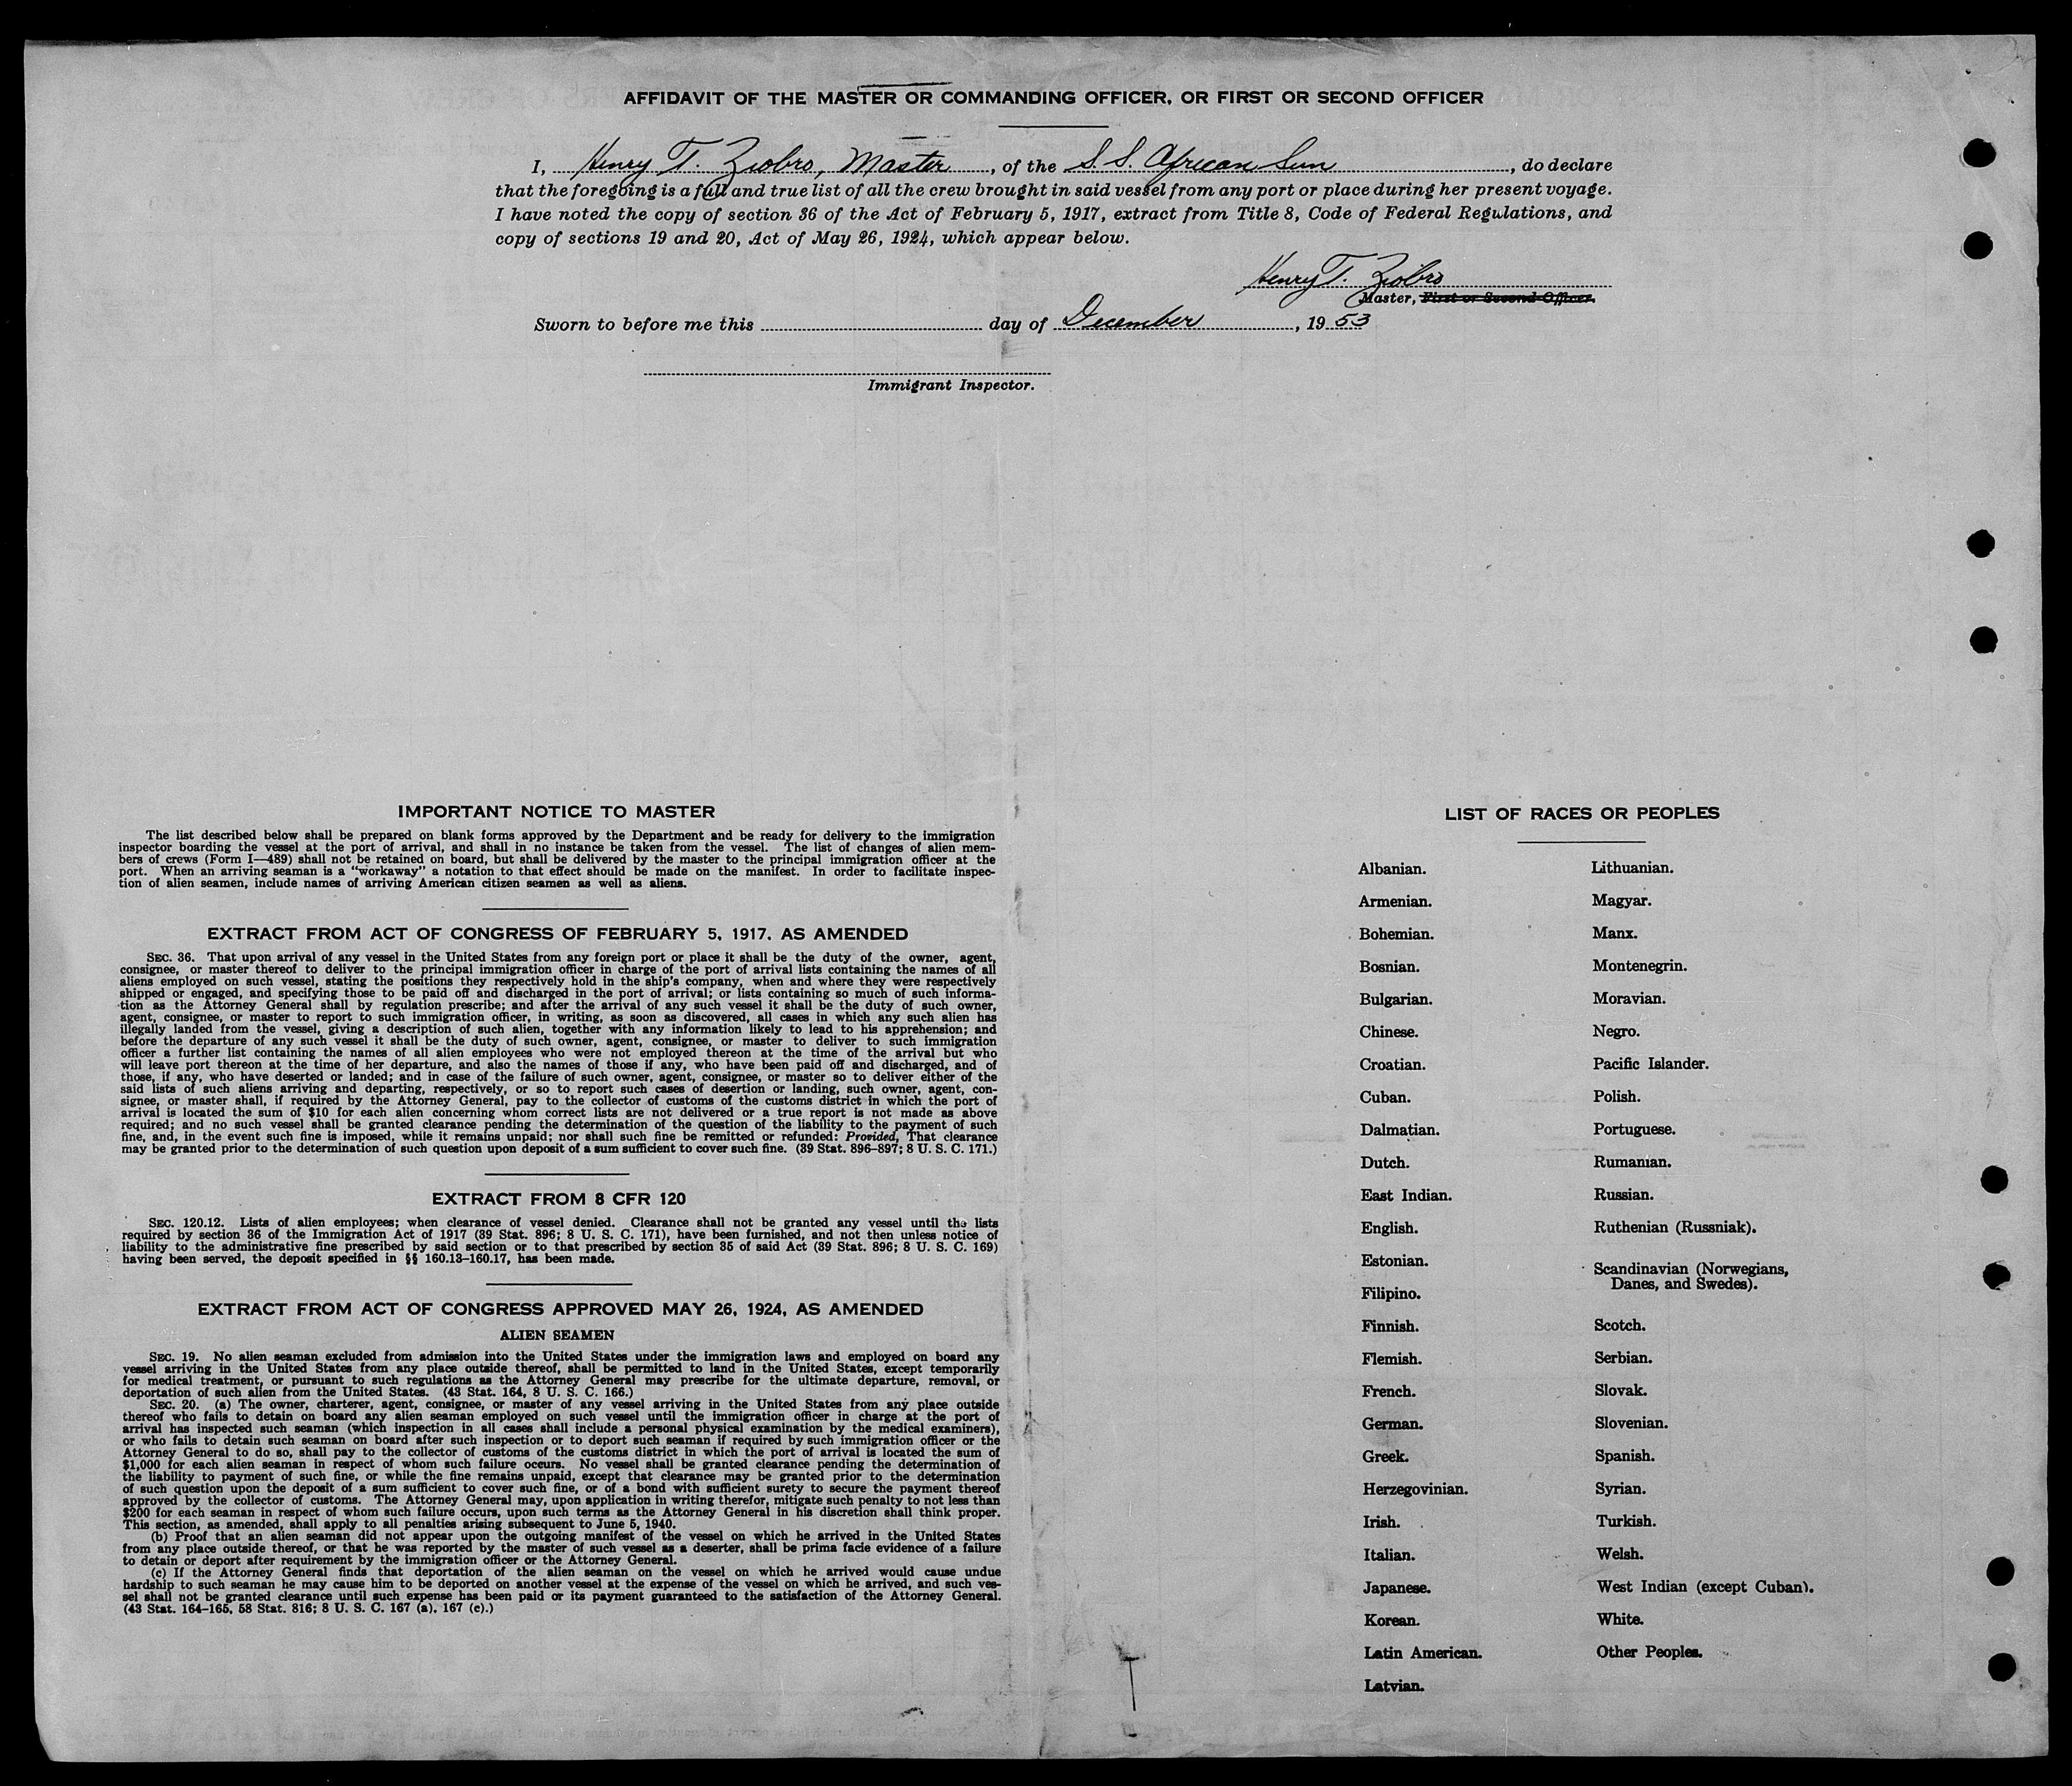 AFFIDAVIT OF THE MASTER OR COMMANDING OFFICER, OR FIRST OR SECOND OFFICER
I, Henry T. Ziobro, Master, of the S.S. African Sun, do declare
that the foregoing is a full and true list of all the crew brought in said vessel from any port or place during her present voyage.
I have noted the copy of section 36 of the Act of February 5, 1917, extract from Title 8, Code of Federal Regulations, and
copy of sections 19 and 20, Act of May 26, 1924, which appear below.
Henry T. Ziobro
Master, First or Second Officer.
Sworn to before me this day of December, 1953
Immigrant Inspector.
IMPORTANT NOTICE TO MASTER
The list described below shall be prepared on blank forms approved by the Department and be ready for delivery to the immigration
inspector boarding the vessel at the port of arrival, and shall in no instance be taken from the vessel. The list of changes of alien mem-
bers of crews (Form I—489) shall not be retained on board, but shall be delivered by the master to the principal immigration officer at the
port. When an arriving seaman is a "workaway" a notation to that effect should be made on the manifest. In order to facilitate inspec-
tion of alien seamen, include names of arriving American citizen seamen as well as aliens.
EXTRACT FROM ACT OF CONGRESS OF FEBRUARY 5, 1917, AS AMENDED
SEC. 36. That upon arrival of any vessel in the United States from any foreign port or place it shall be the duty of the owner, agent,
consignee, or master thereof to deliver to the principal immigration officer in charge of the port of arrival lists containing the names of all
aliens employed on such vessel, stating the positions they respectively hold in the ship's company, when and where they were respectively
shipped or engaged, and specifying those to be paid off and discharged in the port of arrival; or lists containing so much of such informa-
tion as the Attorney General shall by regulation prescribe; and after the arrival of any such vessel it shall be the duty of such owner,
agent, consignee, or master to report to such immigration officer, in writing, as soon as discovered, all cases in which any such alien has
illegally landed from the vessel, giving a description of such alien, together with any information likely to lead to his apprehension; and
before the departure of any such vessel it shall be the duty of such owner, agent, consignee, or master to deliver to such immigration
officer a further list containing the names of all alien employees who were not employed thereon at the time of the arrival but who
will leave port thereon at the time of her departure, and also the names of those if any, who have been paid off and discharged, and of
those, if any, who have deserted or landed; and in case of the failure of such owner, agent, consignee, or master so to deliver either of the
said lists of such aliens arriving and departing, respectively, or so to report such cases of desertion or landing, such owner, agent, con-
signee, or master shall, if required by the Attorney General, pay to the collector of customs of the customs district in which the port of
arrival is located the sum of $10 for each alien concerning whom correct lists are not delivered or a true report is not made as above
required; and no such vessel shall be granted clearance pending the determination of the question of the liability to the payment of such
fine, and, in the event such fine is imposed, while it remains unpaid; nor shall such fine be remitted or refunded: Provided, That clearance
may be granted prior to the determination of such question upon deposit of a sum sufficient to cover such fine. (39 Stat. 896–897; 8 U. S. C. 171.)
EXTRACT FROM 8 CFR 120
SEC. 120.12. Lists of alien employees; when clearance of vessel denied. Clearance shall not be granted any vessel until the lists
required by section 36 of the Immigration Act of 1917 (39 Stat. 896; 8 U. S. C. 171), have been furnished, and not then unless notice of
liability to the administrative fine prescribed by said section or to that prescribed by section 35 of said Act (39 Stat. 896; 8 U. S. C. 169)
having been served, the deposit specified in §§ 160.13–160.17, has been made.
EXTRACT FROM ACT OF CONGRESS APPROVED MAY 26, 1924, AS AMENDED
ALIEN SEAMEN
SEC. 19. No alien seaman excluded from admission into the United States under the immigration laws and employed on board any
vessel arriving in the United States from any place outside thereof, shall be permitted to land in the United States, except temporarily
for medical treatment, or pursuant to such regulations as the Attorney General may prescribe for the ultimate departure, removal, or
deportation of such alien from the United States. (43 Stat. 164, 8 U. S. C. 166.)
SEC. 20. (a) The owner, charterer, agent, consignee, or master of any vessel arriving in the United States from any place outside
thereof who fails to detain on board any alien seaman employed on such vessel until the immigration officer in charge at the port of
arrival has inspected such seaman (which inspection in all cases shall include a personal physical examination by the medical examiners),
or who fails to detain such seaman on board after such inspection or to deport such seaman if required by such immigration officer or the
Attorney General to do so, shall pay to the collector of customs of the customs district in which the port of arrival is located the sum of
$1,000 for each alien seaman in respect of whom such failure occurs. No vessel shall be granted clearance pending the determination of
the liability to payment of such fine, or while the fine remains unpaid, except that clearance may be granted prior to the determination
of such question upon the deposit of a sum sufficient to cover such fine, or of a bond with sufficient surety to secure the payment thereof
approved by the collector of customs. The Attorney General may, upon application in writing therefor, mitigate such penalty to not less than
$200 for each seaman in respect of whom such failure occurs, upon such terms as the Attorney General in his discretion shall think proper.
This section, as amended, shall apply to all penalties arising subsequent to June 5, 1940.
(b) Proof that an alien seaman did not appear upon the outgoing manifest of the vessel on which he arrived in the United States
from any place outside thereof, or that he was reported by the master of such vessel as a deserter, shall be prima facie evidence of a failure
to detain or deport after requirement by the immigration officer or the Attorney General.
(c) If the Attorney General finds that deportation of the alien seaman on the vessel on which he arrived would cause undue
hardship to such seaman he may cause him to be deported on another vessel at the expense of the vessel on which he arrived, and such ves-
sel shall not be granted clearance until such expense has been paid or its payment guaranteed to the satisfaction of the Attorney General.
(43 Stat. 164–165, 58 Stat. 816; 8 U. S. C. 167 (a), 167 (c).)
LIST OF RACES OR PEOPLES
Albanian.
Armenian.
Bohemian.
Bosnian.
Bulgarian.
Chinese.
Croatian.
Cuban.
Dalmatian.
Dutch.
East Indian.
English.
Estonian.
Filipino.
Finnish.
Flemish.
French.
German.
Greek.
Herzegovinian.
Irish.
Italian.
Japanese.
Korean.
Latin American.
Latvian.
Lithuanian.
Magyar.
Manx.
Montenegrin.
Moravian.
Negro.
Pacific Islander.
Polish.
Portuguese.
Rumanian.
Russian.
Ruthenian (Russniak).
Scandinavian (Norwegians,
Danes, and Swedes).
Scotch.
Serbian.
Slovak.
Slovenian.
Spanish.
Syrian.
Turkish.
Welsh.
West Indian (except Cuban).
White.
Other Peoples.